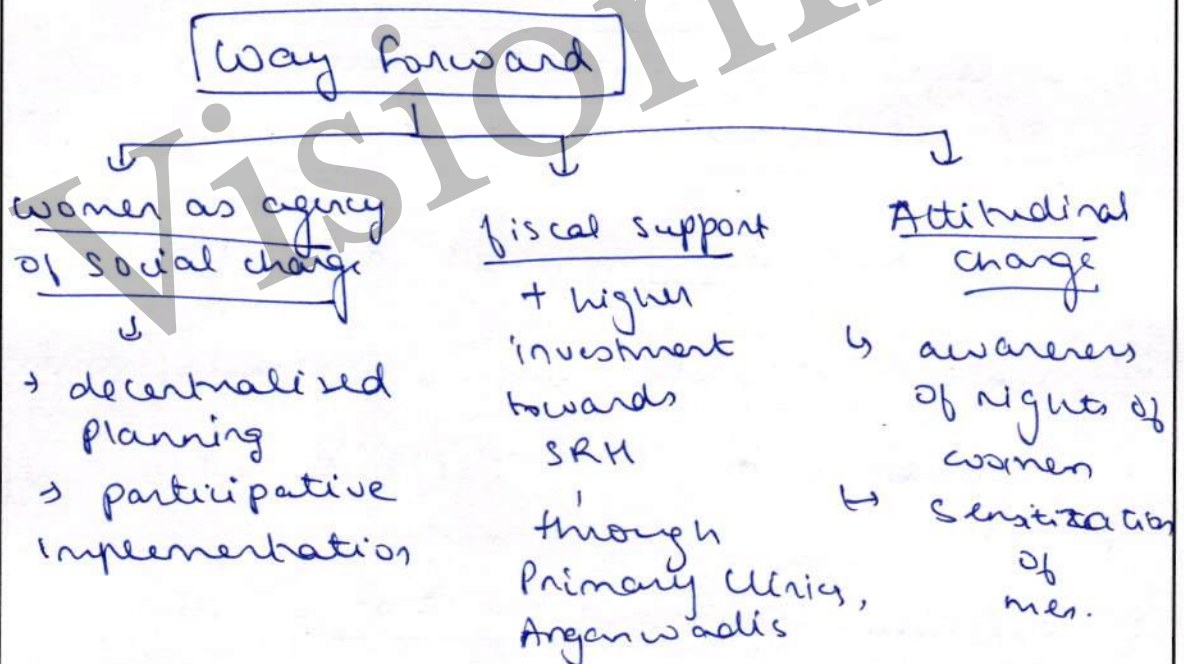 Vision
Way Forward
women as agency
of social change
→ decentralised
planning
→ participative
implementation
fiscal support
+ higher
investment
towards
SRH
through
Primary Clinics,
Anganwadis
Attitudinal
change
↳ awareness
of rights of
women
↳ Sensitization
of
men.